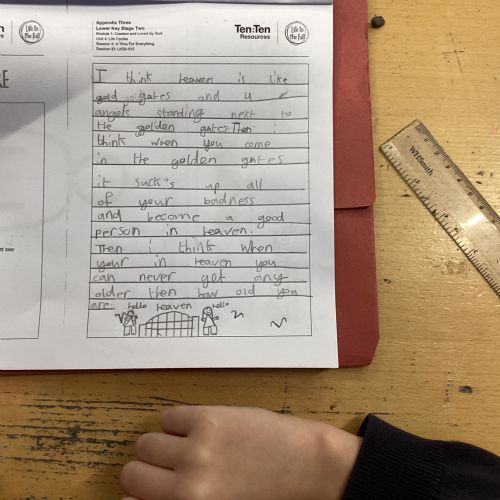 Appendix Three
Lower Key Stage Two
Module 1: Created and Loved by God
Unit 4: Life Cycles
Session 2: A Time For Everything
Session ID: LKS2-013
Ten:Ten
Resources
Life to the Full!
Life to the Full!
I think heaven is like
gold gates and 4
angels standing next to
the golden gates. Then i
think when you come
in the golden gates
it suck's up all
of your badness
and become a good
person in heaven.
Then i think when
your in heaven you
can never get any
older then how old you
are hello heaven hello
WHSmith
ot see